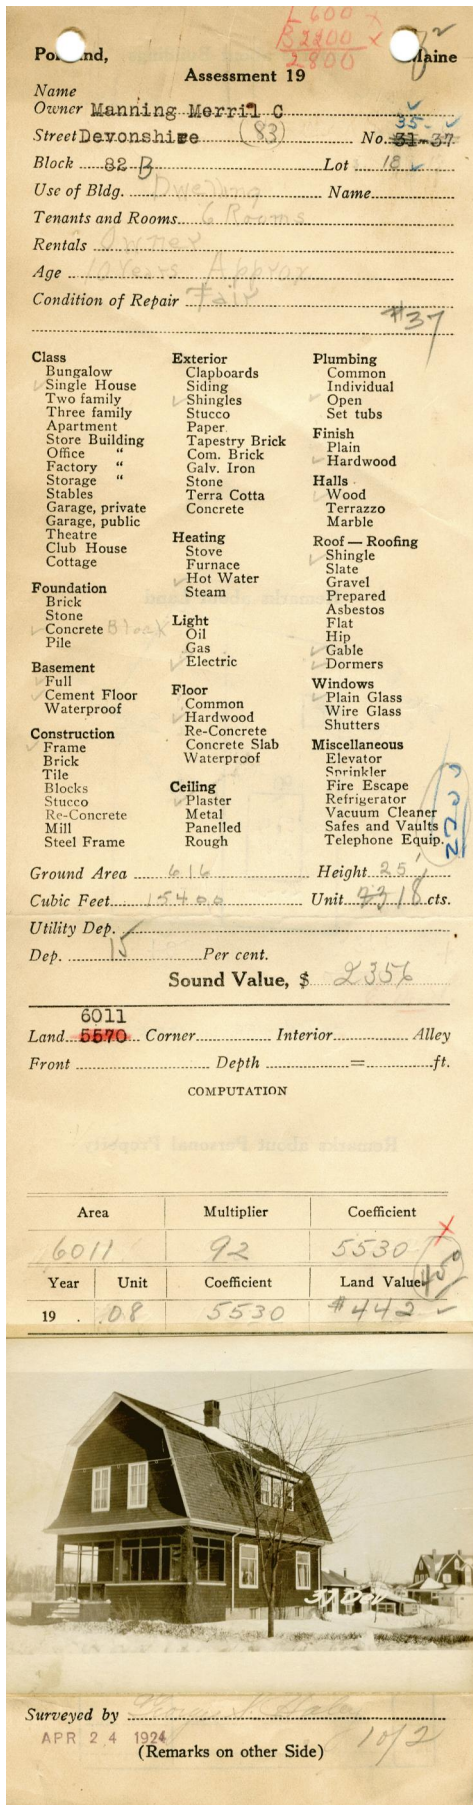 L 600
B 2200
2800
Portland, Maine
Assessment 19
Name
Owner Manning Merril C
35
Street Devonshire (83) No. 31-37
Block 82 B Lot 18
Use of Bldg. Dwelling Name
Tenants and Rooms 6 Rooms
Rentals Owner
Age 10 Years Approx
Condition of Repair Fair
#37
Class
Bungalow
Single House
Two family
Three family
Apartment
Store Building
Office "
Factory "
Storage "
Stables
Garage, private
Garage, public
Theatre
Club House
Cottage
Foundation
Brick
Stone
Concrete Block
Pile
Basement
Full
Cement Floor
Waterproof
Construction
Frame
Brick
Tile
Blocks
Stucco
Re-Concrete
Mill
Steel Frame
Exterior
Clapboards
Siding
Shingles
Stucco
Paper
Tapestry Brick
Com. Brick
Galv. Iron
Stone
Terra Cotta
Concrete
Heating
Stove
Furnace
Hot Water
Steam
Light
Oil
Gas
Electric
Floor
Common
Hardwood
Re-Concrete
Concrete Slab
Waterproof
Ceiling
Plaster
Metal
Panelled
Rough
Plumbing
Common
Individual
Open
Set tubs
Finish
Plain
Hardwood
Halls
Wood
Terrazzo
Marble
Roof — Roofing
Shingle
Slate
Gravel
Prepared
Asbestos
Flat
Hip
Gable
Dormers
Windows
Plain Glass
Wire Glass
Shutters
Miscellaneous
Elevator
Sprinkler
Fire Escape
Refrigerator
Vacuum Cleaner
Safes and Vaults
Telephone Equip.
2200
Ground Area 616 Height 25'
Cubic Feet 15400 Unit 18 cts.
Utility Dep.
Dep. 15 Per cent.
Sound Value, $ 2356
6011
Land 5570 Corner Interior Alley
Front Depth = ft.
COMPUTATION
Area Multiplier Coefficient
6011 92 5530
Year Unit Coefficient Land Value
450
19 . .08 5530 #442
37 Dev
Surveyed by
APR 24 1924
1 of 2
(Remarks on other Side)